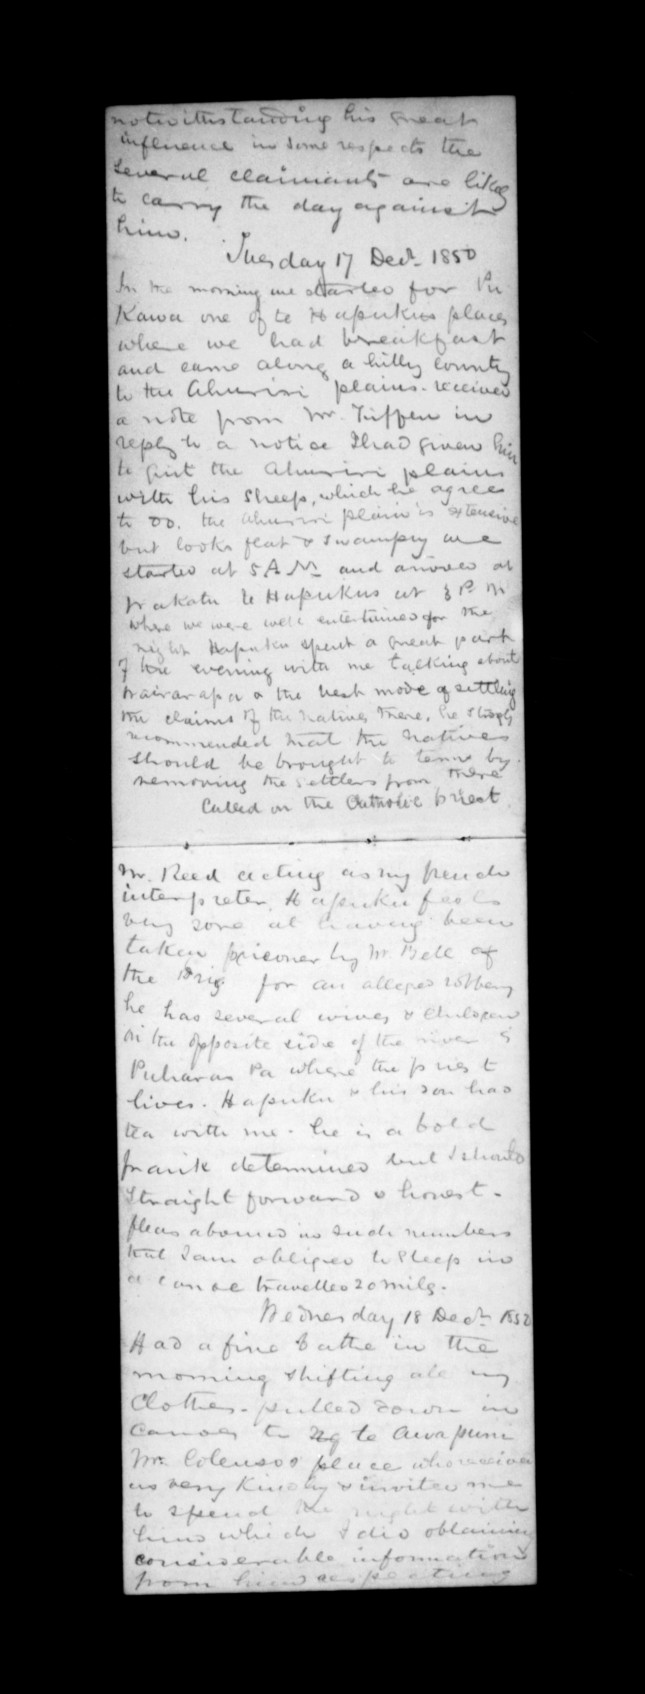 notwithstanding his great
influence in some respects the
several claimants are likely
to carry the day against
him.
Tuesday 17 Decr. 1850
In the morning we started for Pu
Kawa one of te Hapukus places
where we had breakfast
and came along a hilly country
to the Ahuriri plains. received
a note from Mr. Tiffen in
reply to a notice I had given him
to quit the Ahuriri plains
with his sheep, which he agrees
to do. the Ahuriri plain is extensive
but looks flat & swampy we
started at 5 A.M. and arrived at
Wakatu te Hapukus at 3 P.M
where we were well entertained for the
night Hapuku spent a great part
of the evening with me talking about
Wairarapa & the best mode of settling
the claims of the natives there. he strongly
recommended that the natives
should be brought to terms by
removing the settlers from there
Called on the Catholic priest
Mr. Reed acting as my french
interpreter. Hapuku feels
very sore at having been
taken prisoner by Mr. Bell of
the Brig for an alleged robbery
he has several wives & children
on the opposite side of the river
Puharas Pa where the priest
lives. Hapuku & his son had
tea with me. he is a bold
frank determined but I should
straight forward & honest.
fleas abound in such numbers
that I am obliged to sleep in
a canoe travelled 20 miles.
Wednesday 18 Decr. 1850
Had a fine bathe in the
morning shifting all my
Clothes. pulled down in
Canoes to te Awapuni
Mr. Colensos place who received
us very kindly & invited me
to spend the night with
him which I did obtaining
considerable information
from him respecting